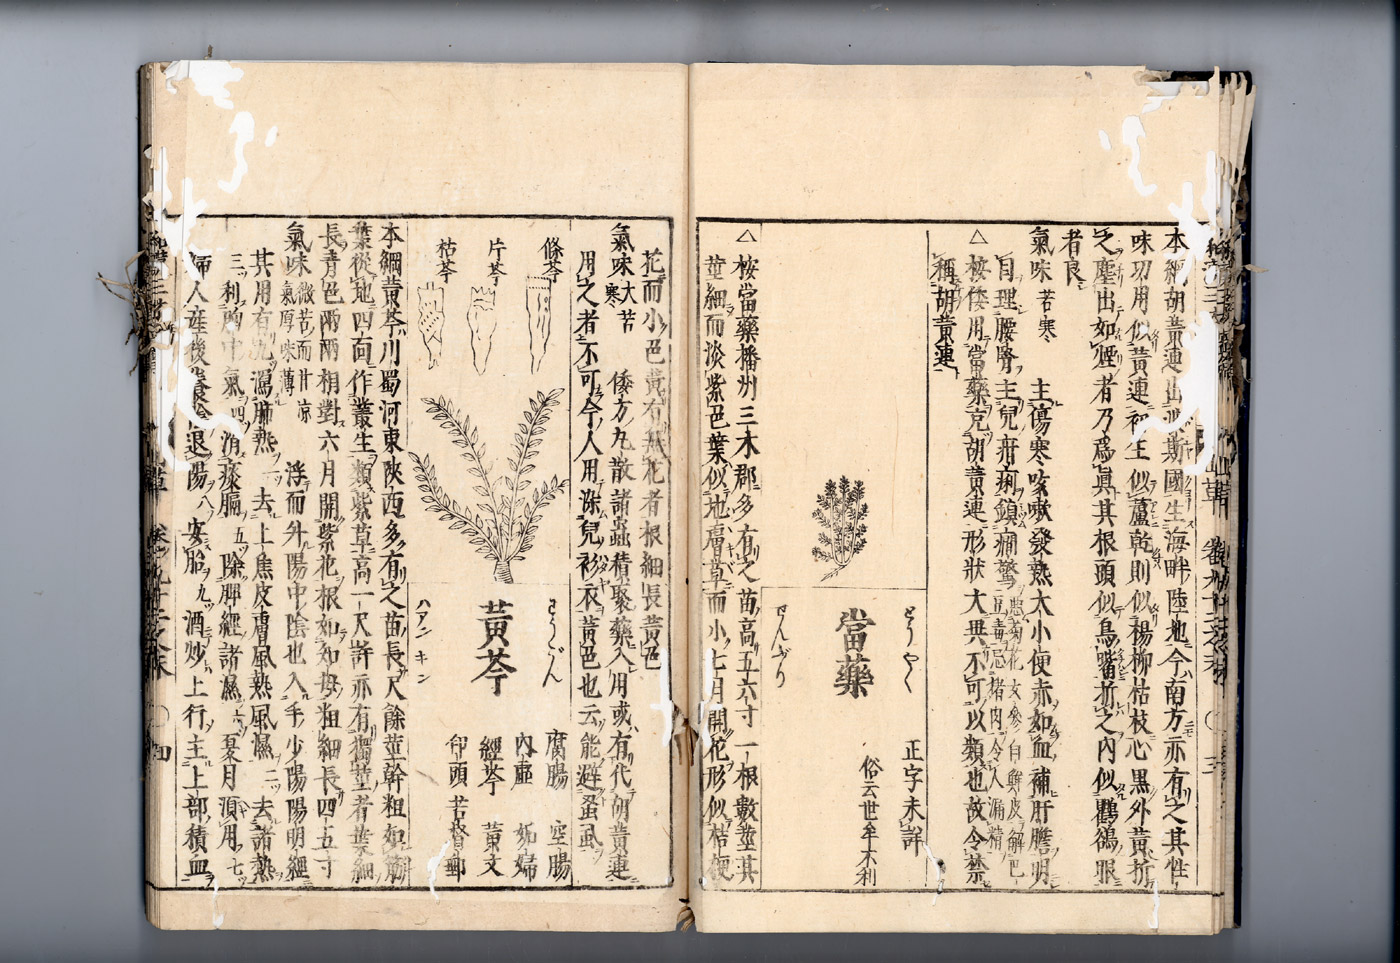 本綱胡黃連出波斯國生海畔陸地今南方亦有之其性
味功用似黃連初生似蘆乾則似楊柳枯枝心黑外黃折
之塵出如煙者乃爲眞其根頭似鳥嘴折之內似鸜鵒眼
者良
氣味 苦寒 主傷寒咳嗽發熱大小便赤如血補肝膽明
目理腰腎主兒疳痢鎮癇驚
惡菊花玄參白鮮皮解巴
豆毒忌猪肉令人漏精
△按倭用當藥充胡黃連形狀大異不可以類也故令禁
稱胡黃連
とうやく
當藥
せんぶり
正字未詳
俗云世牟不利
△按當藥播州三木郡多有之苗高五六寸一根數莖其
莖細而淡紫色葉似地膚草而小七月開花形似桔梗
花而小色黃有無花者根細長黃色
氣味 大苦寒 倭方丸散諸蟲積聚藥入用或有代胡黃連
用之者不可令人用深兒衫衣黃色也云能避蚤虱
條芩
片芩
枯芩
わうごん
黃芩
ハアン キン
腐腸 空腸
內虛 妬婦
經芩 黃文
印頭 苦督郵
本綱黃芩川蜀河東陝西多有之苗長尺餘莖幹粗如筯
葉從地四向作叢生類紫草高一尺許亦有獨莖者葉細
長青色兩兩相對六月開紫花根如知母粗細長四五寸
氣味
微苦而甘涼
氣厚味薄
浮而升陽中陰也入手少陽陽明經
其用有九瀉肺熱一去上焦皮膚風熱風濕二去諸熱
三利胸中氣四消痰膈五除脾經諸濕六夏月須用七
婦人產後養陰退陽八安胎九酒炒上行主上部積血